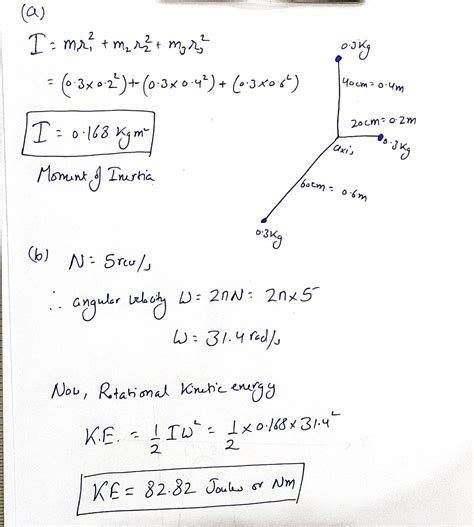 (a)
I = mr₁² + m₂r₂² + m₃r₃²
= (0.3×0.2²) + (0.3×0.4²) + (0.3×0.6²)
I = 0.168 Kgm²
Moment of Inertia
0.3Kg
40cm = 0.4m
20cm = 0.2m
0.3Kg
axis
60cm = 0.6m
0.3Kg
(b) N = 5rev/s
∴ angular velocity ω = 2πN = 2π×5
ω = 31.4 rad/s
Now, Rotational Kinetic energy
K.E. = 1/2 Iω² = 1/2 × 0.168 × 31.4²
KE = 82.82 Joules or Nm